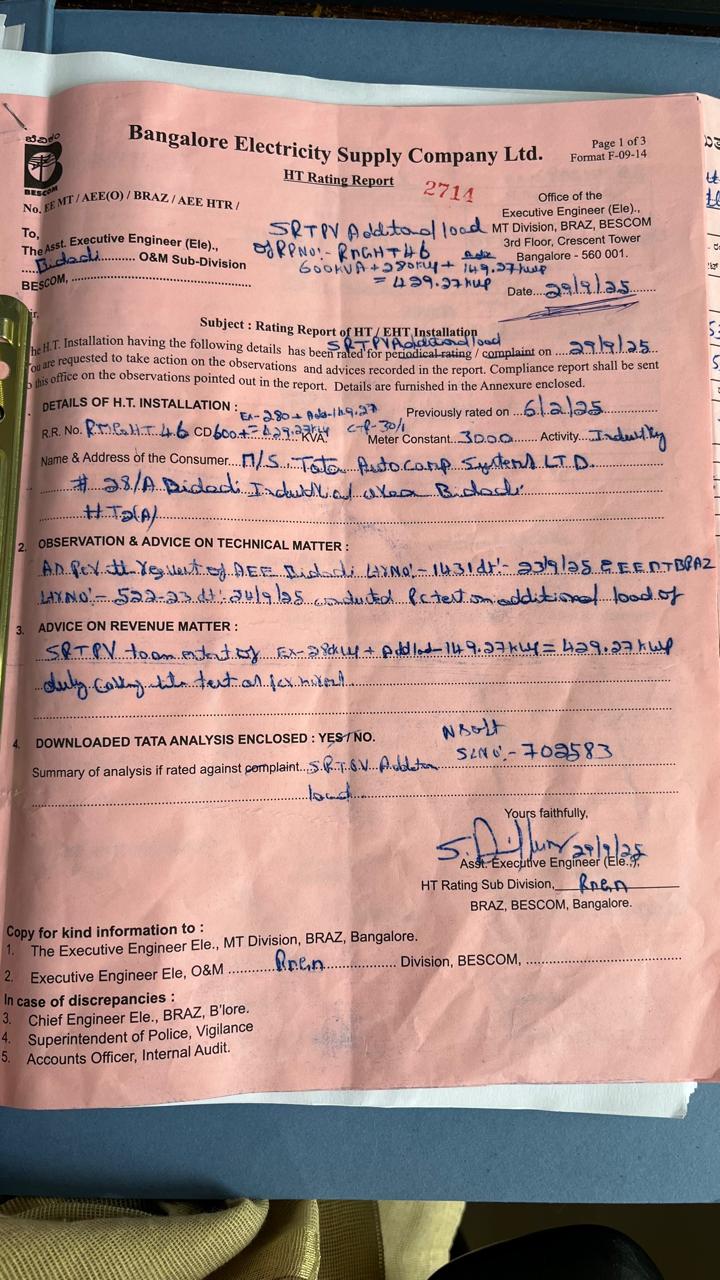 ಬೆವಿಕಂ
BESCOM
Bangalore Electricity Supply Company Ltd.
Page 1 of 3
Format F-09-14
HT Rating Report
2714
No. EE MT / AEE(O) / BRAZ / AEE HTR /
Office of the
Executive Engineer (Ele).,
MT Division, BRAZ, BESCOM
3rd Floor, Crescent Tower
Bangalore - 560 001.
To,
The Asst. Executive Engineer (Ele).,
Bidadi O&M Sub-Division
BESCOM,
SRTPV Additonal load
of RRNO:- RMGHT46
600KVA + 280kwp + 149.27kwp
= 429.27kwp
Date 29/9/25
ir,
Subject : Rating Report of HT / EHT Installation
SRTPV Additional load
he H.T. Installation having the following details has been rated for periodical rating / complaint on 29/9/25
ou are requested to take action on the observations and advices recorded in the report. Compliance report shall be sent
this office on the observations pointed out in the report. Details are furnished in the Annexure enclosed.
DETAILS OF H.T. INSTALLATION :
Ex-280+Add-149.27
Previously rated on 6/2/25
R.R. No. RMGHT46 CD 600+ 429.27kwp KVA. CTR-30/1 Meter Constant 3000 Activity Industry
Name & Address of the Consumer M/S. Tata AutoComp Systems LTD.
# 28/A Bidadi Industrial area Bidadi
HT2(A)
2. OBSERVATION & ADVICE ON TECHNICAL MATTER :
As Per the request of AEE Bidadi LrNO:- 1431 dt:- 23/9/25 & EEMTBRAZ
LrNO:- 522-23 dt: 24/9/25 conducted test on additional load of
3. ADVICE ON REVENUE MATTER :
SRTPV to an extent of Ex-280kwp + Addl 149.27kwp = 429.27kwp
duly test as per
4. DOWNLOADED TATA ANALYSIS ENCLOSED : YES / NO.
SLNO:- 702583
Summary of analysis if rated against complaint S.R.T.P.V. Addition
load
Yours faithfully,
29/9/25
Asst. Executive Engineer (Ele.),
HT Rating Sub Division, Rmgm
BRAZ, BESCOM, Bangalore.
Copy for kind information to :
1. The Executive Engineer Ele., MT Division, BRAZ, Bangalore.
2. Executive Engineer Ele, O&M Rmgm Division, BESCOM,
In case of discrepancies :
3. Chief Engineer Ele., BRAZ, B'lore.
4. Superintendent of Police, Vigilance
5. Accounts Officer, Internal Audit.